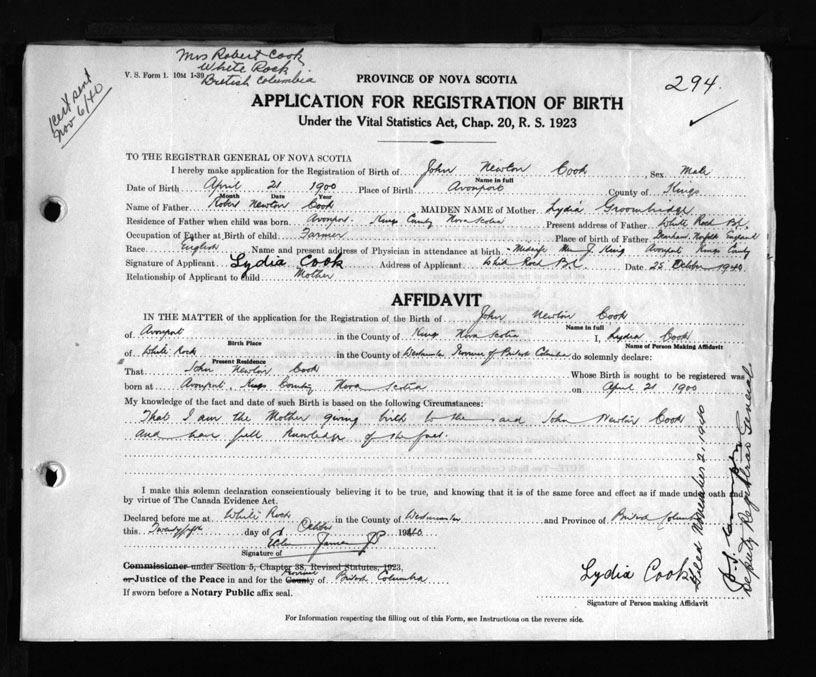 Mrs Robert Cook
White Rock
British Columbia
V. S. Form 1. 10M 1-39
294.
cert sent
Nov 6/40
PROVINCE OF NOVA SCOTIA
APPLICATION FOR REGISTRATION OF BIRTH
Under the Vital Statistics Act, Chap. 20, R. S. 1923
TO THE REGISTRAR GENERAL OF NOVA SCOTIA
I hereby make application for the Registration of Birth of John Newton Cook, Sex Male
Name in full
Date of Birth April 21 1900 Place of Birth Avonport County of Kings
Month Date Year
Name of Father Newton Cook MAIDEN NAME of Mother Lydia Groombridge
Residence of Father when child was born Avonport. Kings County Nova Scotia Present address of Father White Rock B.C.
Occupation of Father at Birth of child Farmer Place of birth of Father Norfolk England
Race English Name and present address of Physician in attendance at birth Midwife Mrs J. King Avonport Kings County
Signature of Applicant Lydia Cook Address of Applicant White Rock B.C. Date 25 October 1940
Relationship of Applicant to child Mother
AFFIDAVIT
IN THE MATTER of the application for the Registration of the Birth of John Newton Cook
Name in full
of Avonport in the County of Kings Nova Scotia I, Lydia Cook
Birth Place Name of Person Making Affidavit
of White Rock in the County of Westminster Province of British Columbia do solemnly declare:
Present Residence
That John Newton Cook Whose Birth is sought to be registered was
born at Avonport, Kings County Nova Scotia on April 21 1900
My knowledge of the fact and date of such Birth is based on the following Circumstances:
That I am the Mother giving birth to the said John Newton Cook
and have full knowledge of the fact.
I make this solemn declaration conscientiously believing it to be true, and knowing that it is of the same force and effect as if made under oath and
by virtue of The Canada Evidence Act.
Declared before me at White Rock in the County of Westminster and Province of British Columbia
this Twenty fifth day of October 1940
James JP
Signature of
Commissioner under Section 5, Chapter 38, Revised Statutes, 1923,
Province
or Justice of the Peace in and for the County of British Columbia
If sworn before a Notary Public affix seal.
Lydia Cook
Signature of Person making Affidavit
Filed November 2, 1940
Deputy Registrar General
For Information respecting the filling out of this Form, see Instructions on the reverse side.